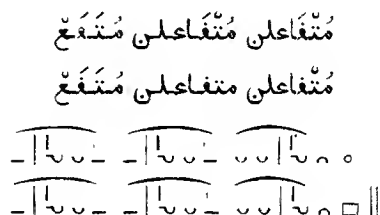 مُتْفَاعلن مُتْفَاعلن مُتَفَعْ
مُتْفاعلن متفاعلن مُتَفَعْ